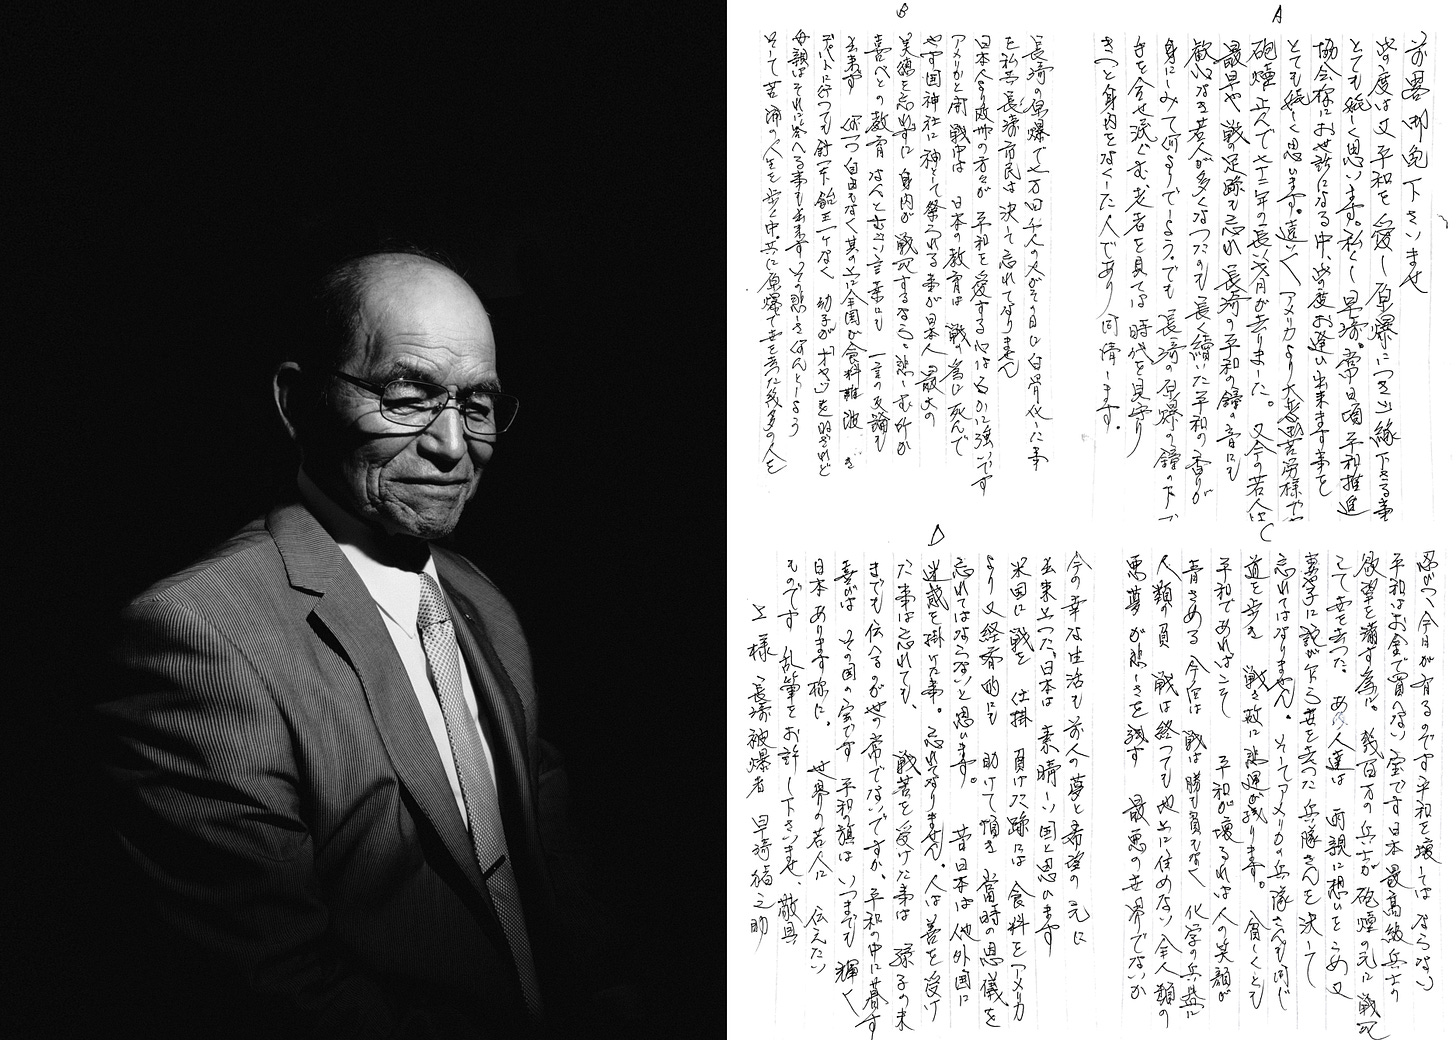 A
前略御免下さいませ
此の度は又平和を愛し原爆につき御縁下さる事
とても嬉しく思います。私くし早崎。常日頃平和推進
協会様にお世話になる中、此の度お逢い出来ます事を
とても嬉しく思います。遠いアメリカより大変御苦労様や
砲煙止んで七十二年の長い月が去りました。又今の若人は
最早や戦の足跡も忘れ長崎の平和の鐘の音にも
歓心なき若人が多くなつたのも長く続いた平和の香りが
身にしみて何ようでしよう。でも長崎の原爆の鐘の下で
手を合せ涙ぐむ老者を見ては時代を見守り
きつと身内をなくした人であり同情します。
B
長崎の原爆で七万四千人の人がその日に白骨化した事
を私共長崎市民は決して忘れてなりません
日本人より欧州の方々が平和を愛する心はるかに強いです
アメリカと開戦中は日本の教育は戦の為に死んで
やす国神社に神として祭られる事が日本人最大の
笑顔を忘れずに身内が戦死するなら。悲しむ所か
喜べとの教育なんと云う言葉にも一言の反論も
出来ず何つ自由もなく其の上に全国が食料難波き
デパートに行つても針一本飴玉一ケなく幼子が「オヤツ」をねだれど
母親はそれに答へる事も出来ずその悲しさなんとしよう
そして苦涌の人生を歩く中、共に原爆で世を去つた多の人を
C
居がつて今日が有るのです平和を壊してはならない
平和はお金で買へない宝です日本最高級兵士の
欲望を満す為に。幾百万の兵士が砲煙の元に戦死
して世を去つた。あの人達は両親に想いをこめ又
妻子に託がら世を去つた兵隊さんを決して
忘れてはなりません。そしてアメリカの兵隊さんも同じ
道を歩き戦さ故に悲運が残ります。貧しくとも
平和であればこそ平和が壊るれば人の笑顔が
青ざめる今度は戦は勝も負もなく化学の兵器に
人類の負戦は終つても地上に住めない全人類の
悪夢が悲しさを残す最悪の世界でないか
D
今の幸な生活も前人の夢と希望の元に
出来上つた、日本は素晴しい国と思ひます
米国に戦を仕掛負けた跡には食料をアメリカ
より又経済的にも助けて頂き当時の恩儀を
忘れてはならないと思います。昔日本は他外国に
迷惑を掛けた事。忘れてなりません。人は善を受け
た事は忘れても、戦苦を受けた事は孫子の末
までも伝へるのが世の常でないですか、平和の中に暮す
喜びはその国の宝です平和の旗はいつまでも輝く
日本あります様に。世界の若人に伝えたい
ものです乱筆をお許し下さいませ、敬具
上様長崎被爆者早崎猪之助